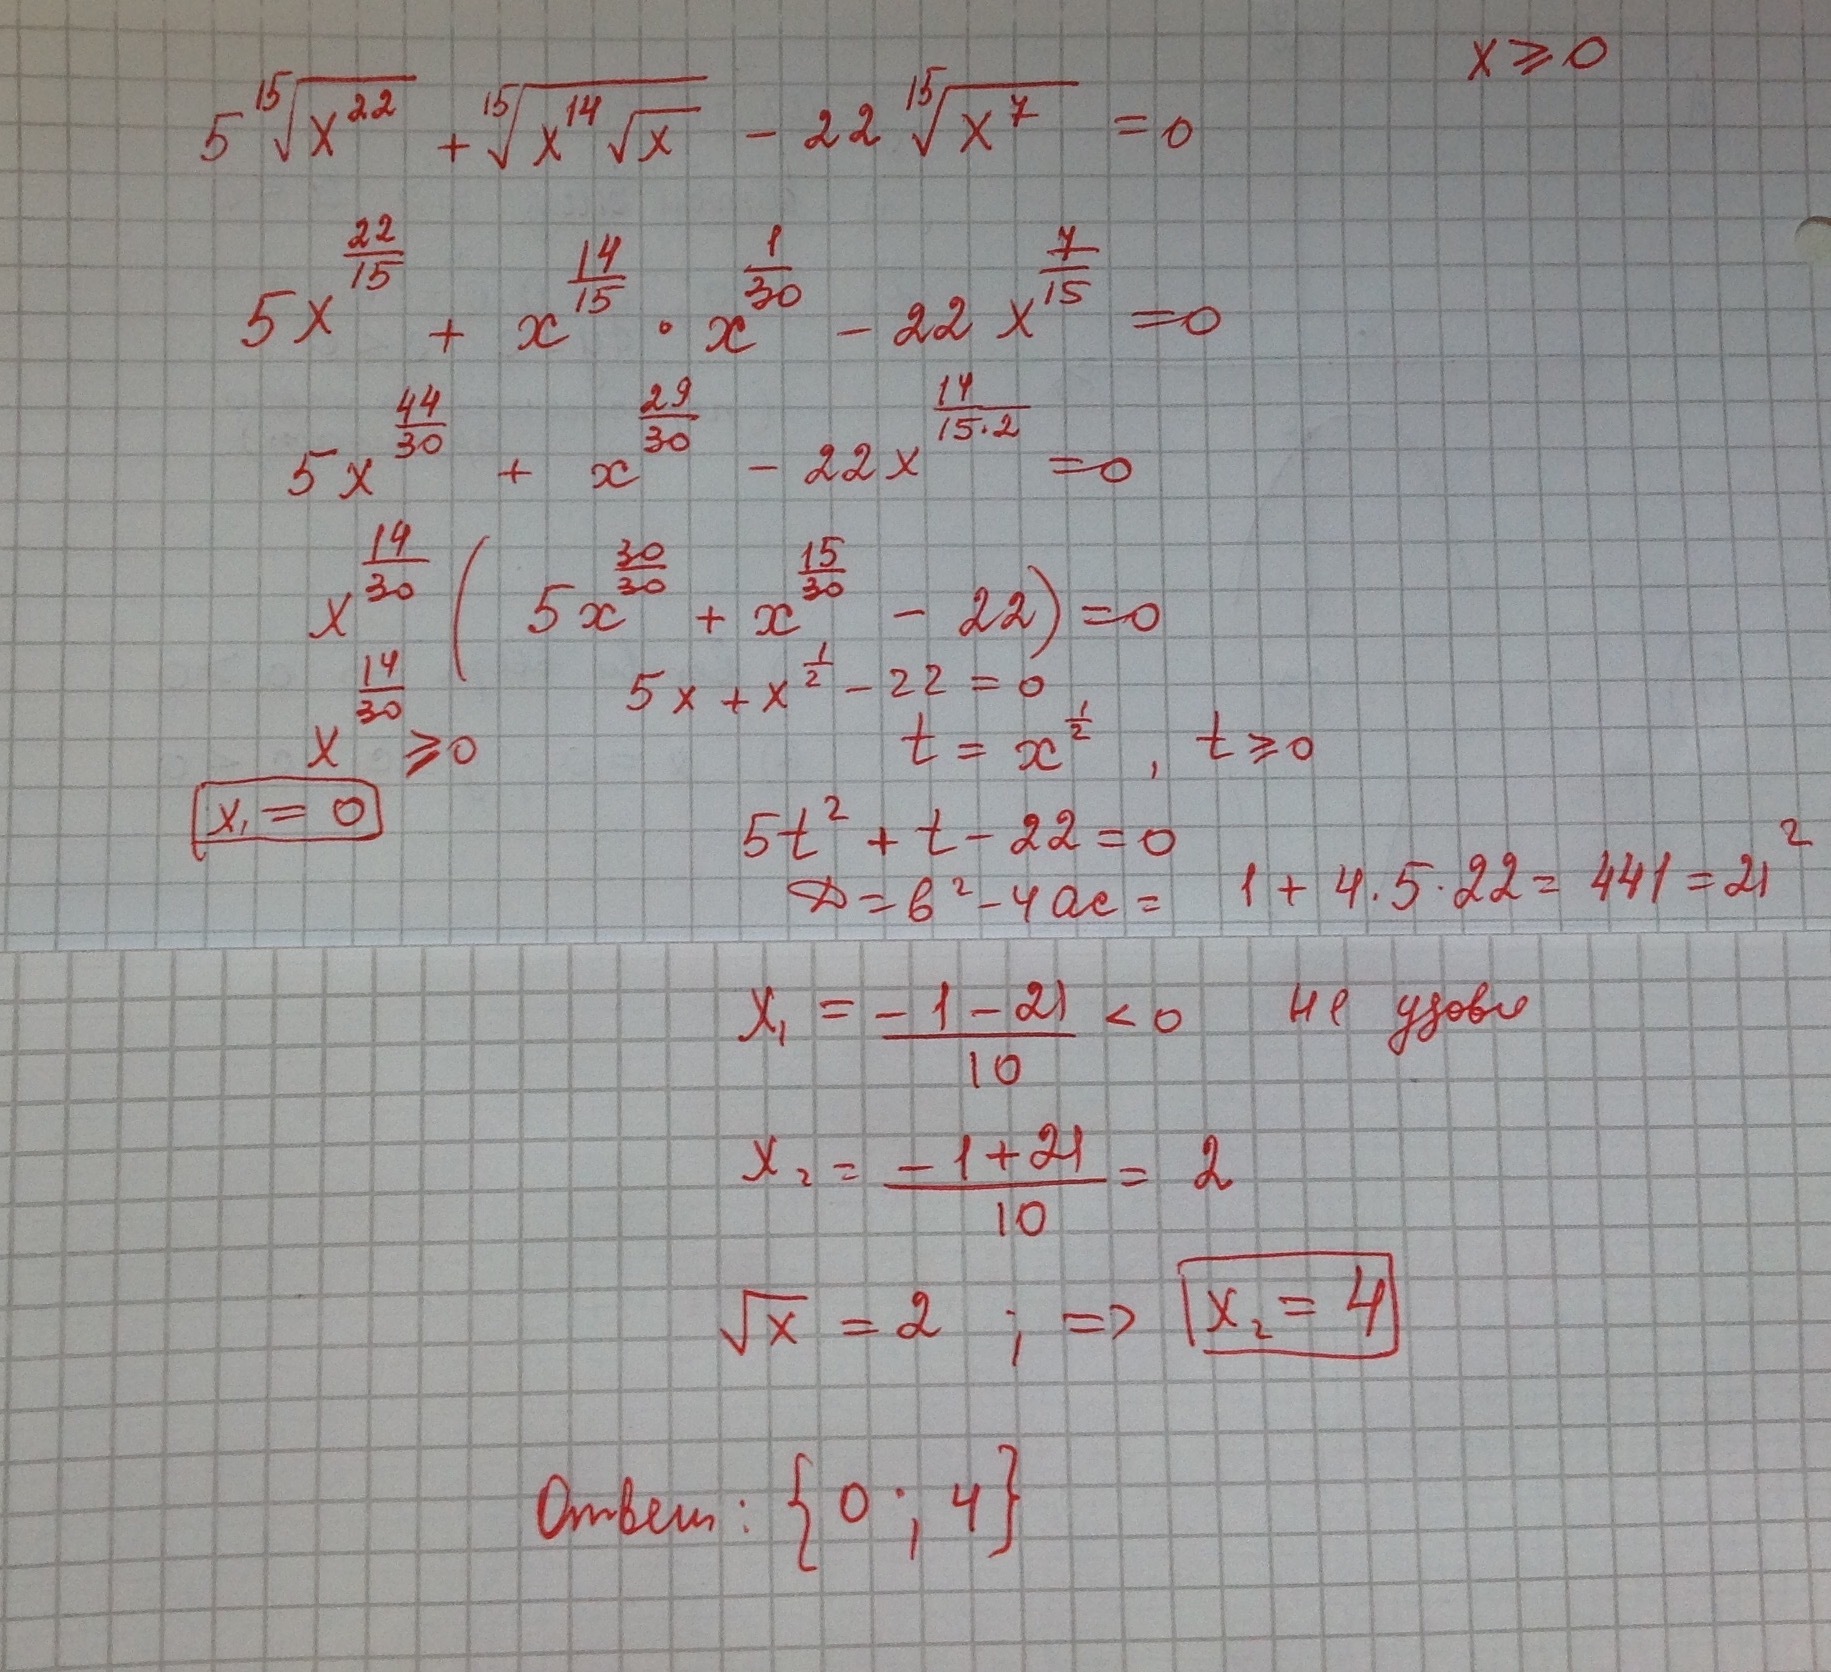 x ⩾ 0
5 ¹⁵√(x²²) + ¹⁵√(x¹⁴√x) − 22 ¹⁵√(x⁷) = 0
5x^(22/15) + x^(14/15) · x^(1/30) − 22x^(7/15) = 0
5x^(44/30) + x^(29/30) − 22x^(14/(15·2)) = 0
x^(14/30) (5x^(30/30) + x^(15/30) − 22) = 0
5x + x^(1/2) − 22 = 0
x^(14/30) ⩾ 0 t = x^(1/2), t ⩾ 0
x₁ = 0
5t² + t − 22 = 0
D = b² − 4ac = 1 + 4·5·22 = 441 = 21²
x₁ = (−1−21)/10 < 0 не удовл
x₂ = (−1+21)/10 = 2
√x = 2 ; => x₂ = 4
Ответ: {0 ; 4}